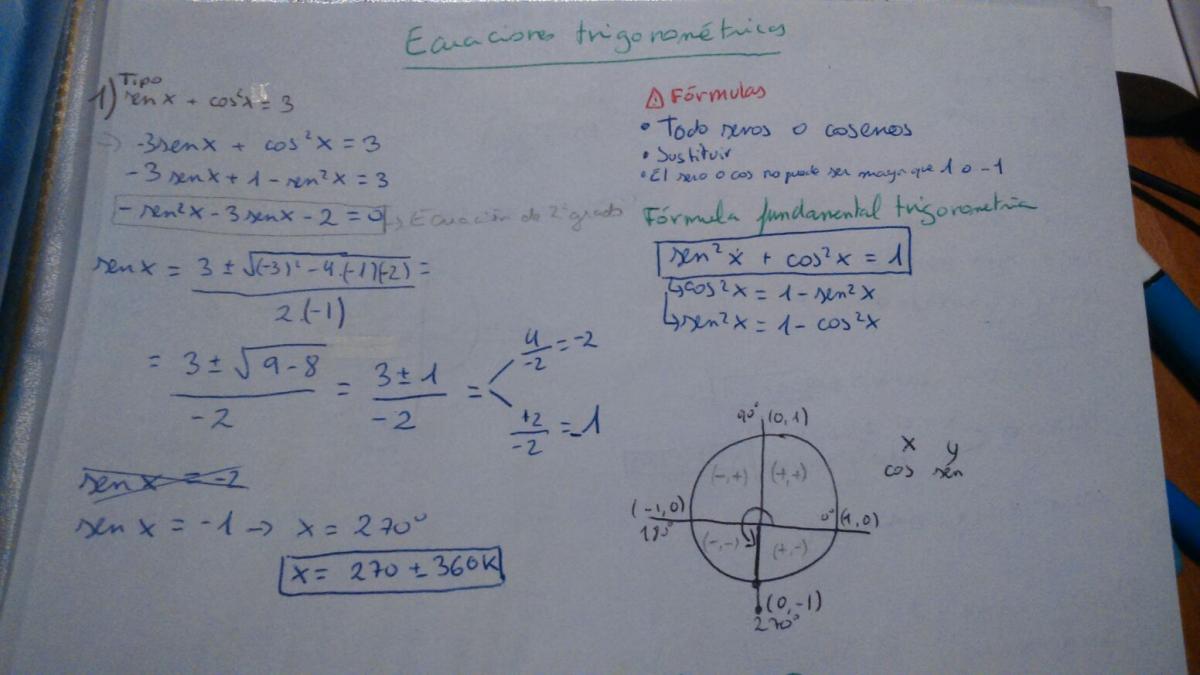 Ecuaciones trigonométricas
Tipo
1) sen x + cos²x = 3
→ -3 sen x + cos²x = 3
-3 sen x + 1 - sen²x = 3
- sen²x - 3 sen x - 2 = 0 → Ecuación de 2º grado
sen x = 3 ± √(-3)² - 4·(-1)(-2) =
2·(-1)
= 3 ± √9 - 8 = 3 ± 1 =
-2 -2
4/-2 = -2
+2/-2 = -1
sen x = -2
sen x = -1 → x = 270°
x = 270 ± 360K
⚠ Fórmulas
• Todo senos o cosenos
• Sustituir
• El seno o cos no puede ser mayor que 1 o -1
Fórmula fundamental trigonometria
sen²x + cos²x = 1
↳ cos²x = 1 - sen²x
↳ sen²x = 1 - cos²x
90° (0,1)
x y
cos sen
(-,+) (+,+)
(-1,0) 0° (1,0)
180°
(-,-) (+,-)
(0,-1)
270°